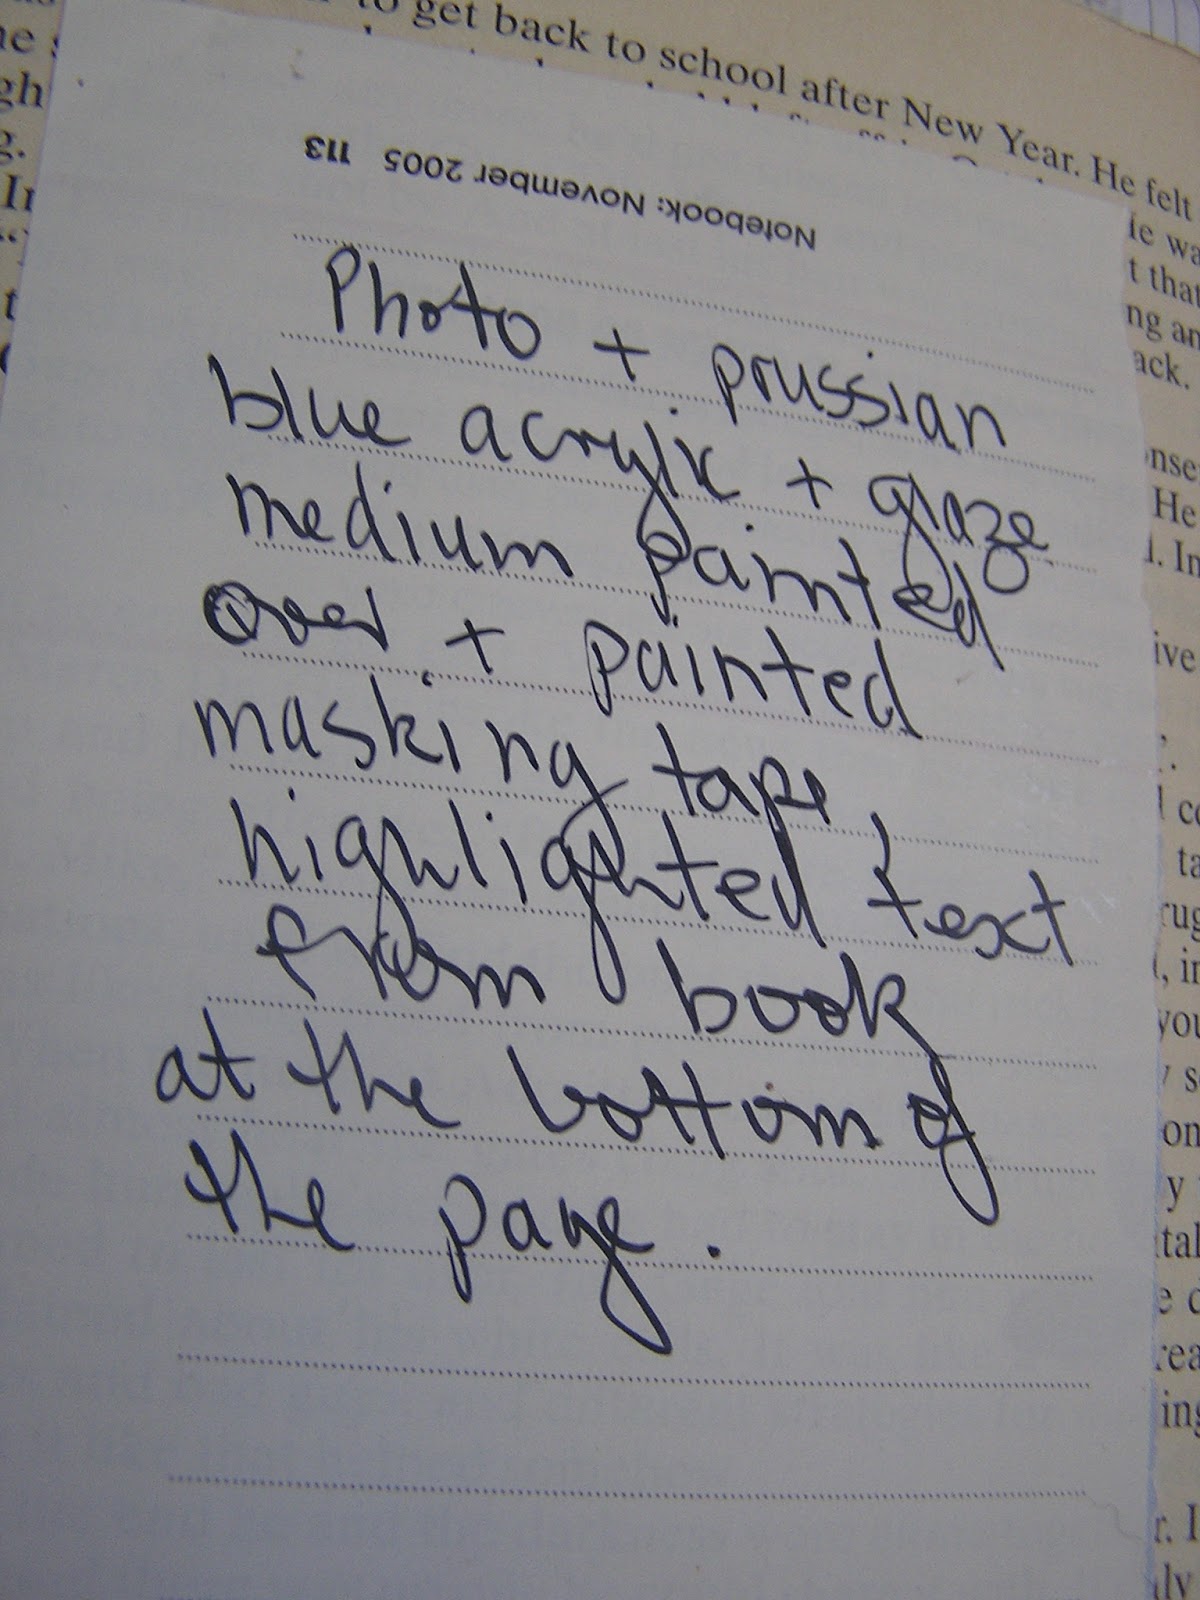 to get back to school after New Year. He felt
Notebook: November 2005 113
Photo + prussian
blue acrylic + glaze
medium painted
over + painted
masking tape,
highlighted text
from book
at the bottom of
the page.
gh
g.
t that
ng an
ack.
He
. In
ive
you
on
y
ing